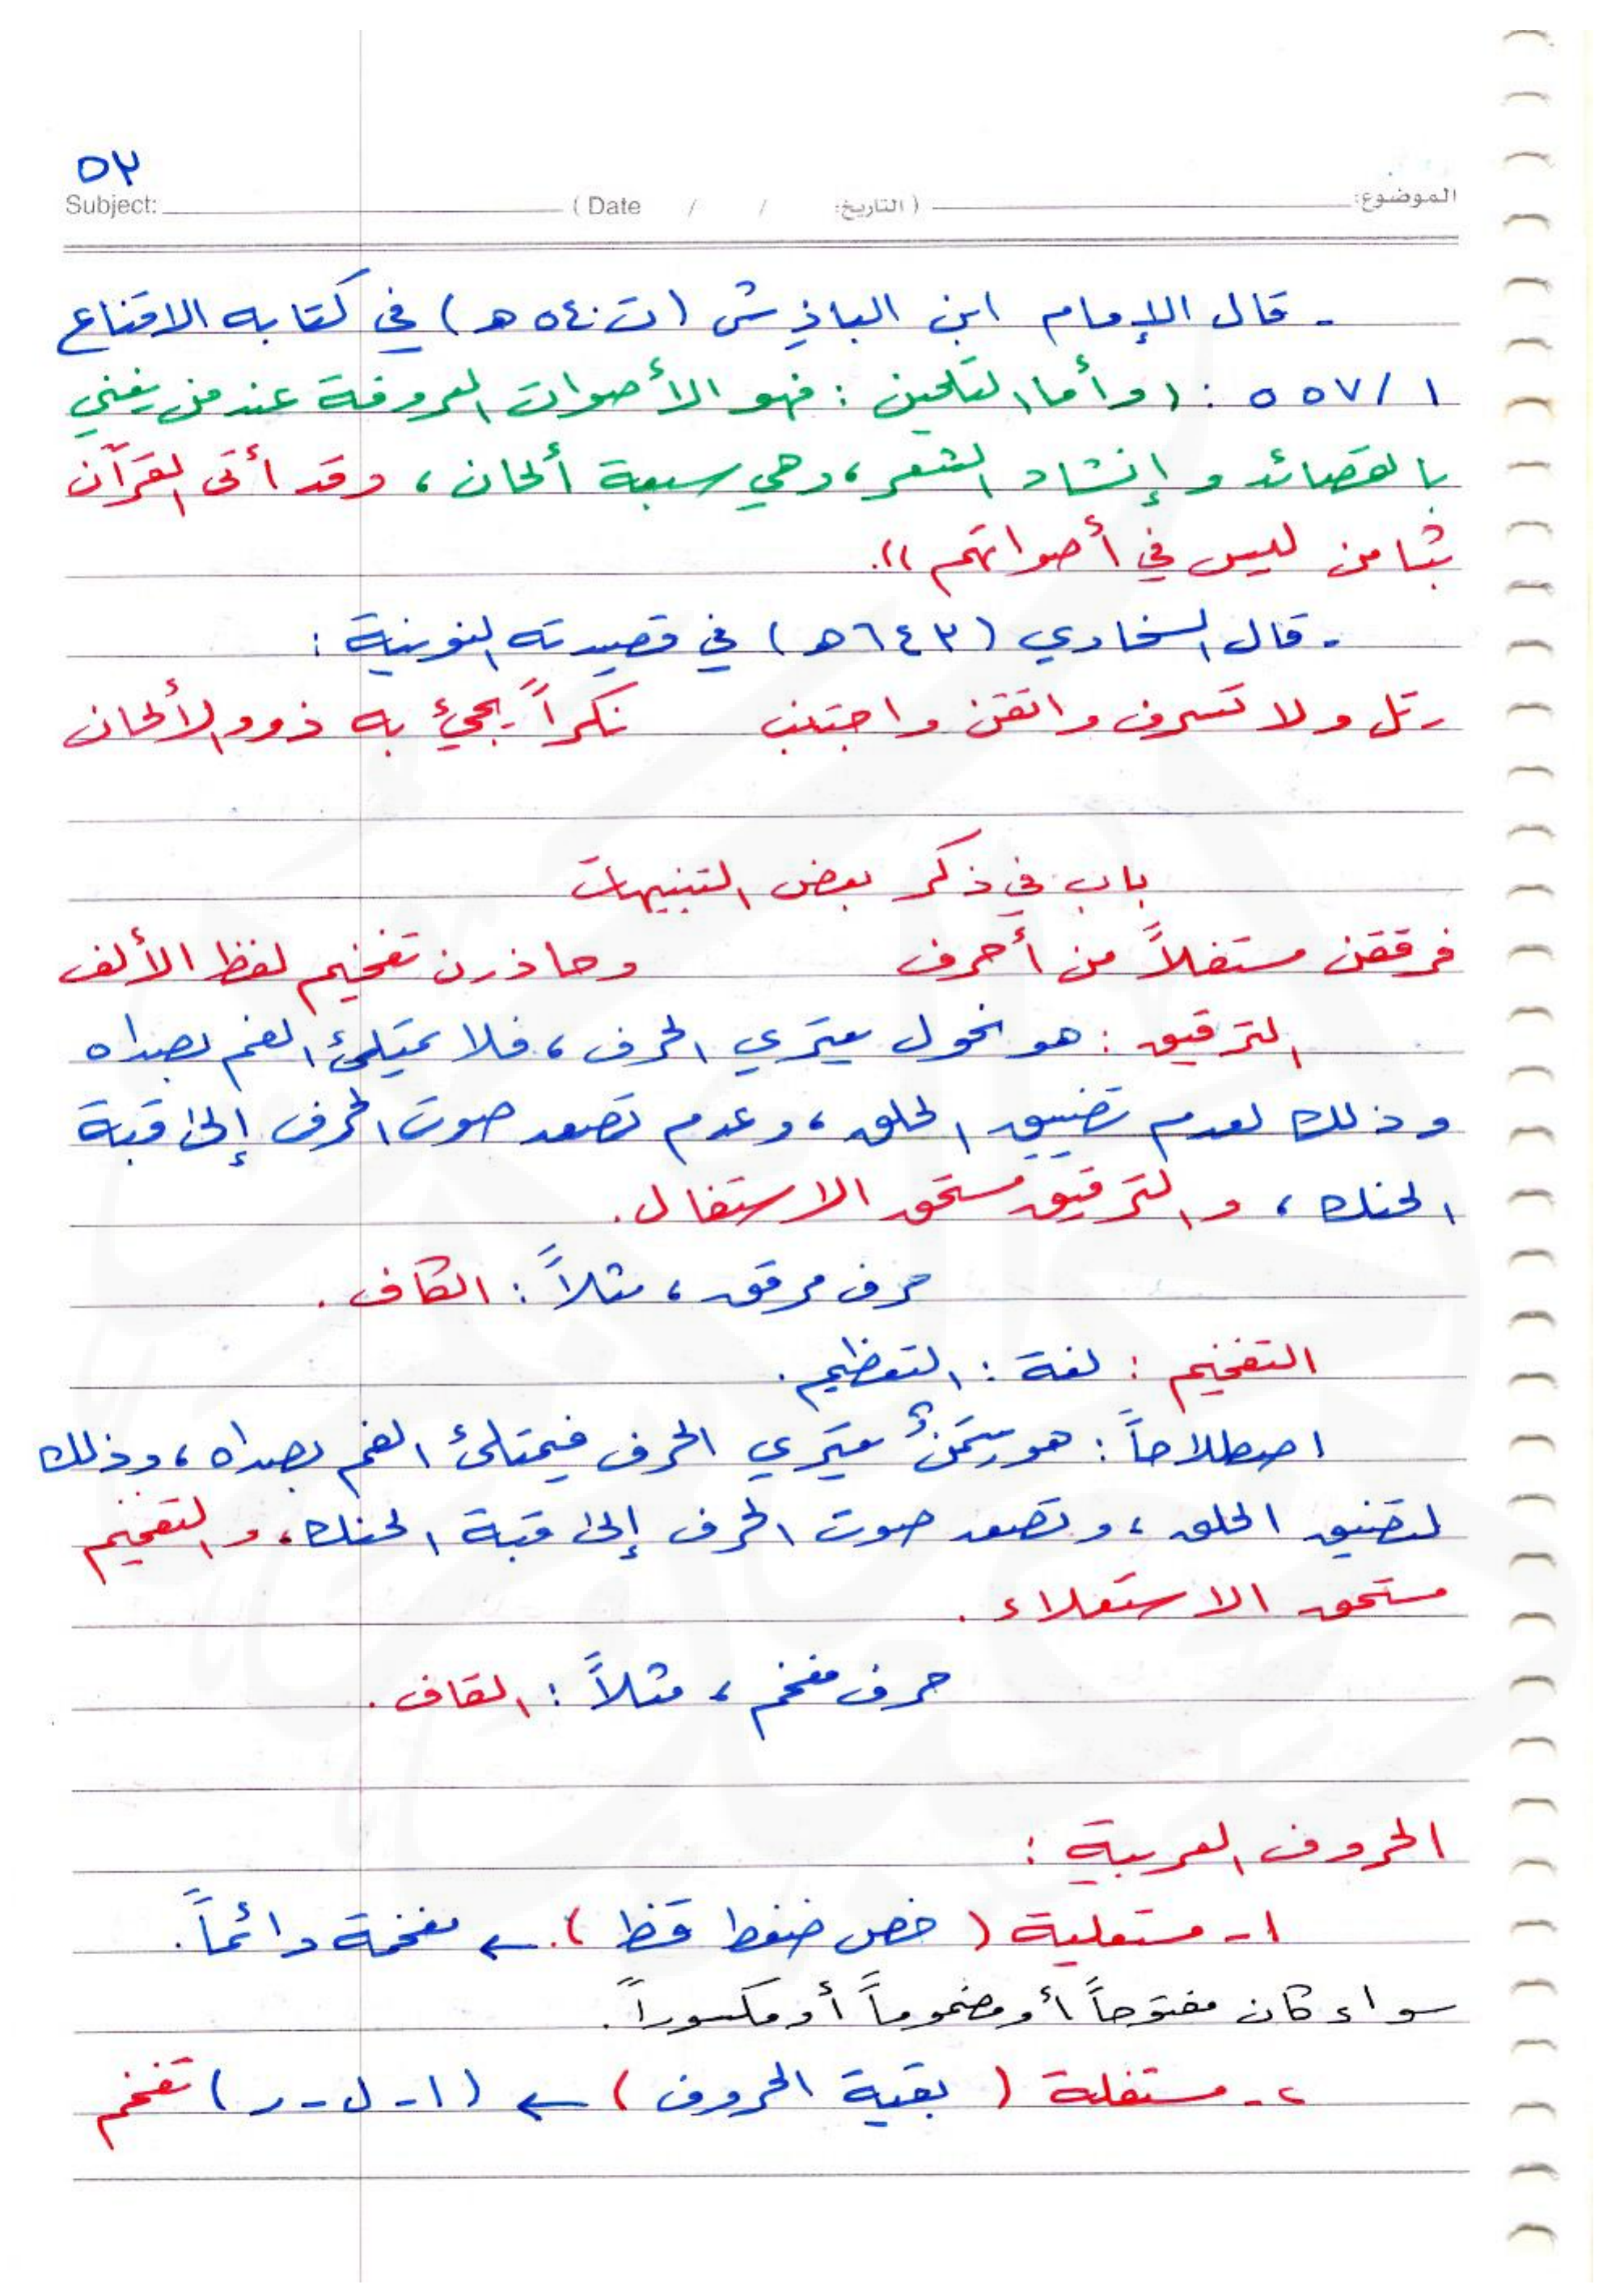 ٥٣
Subject: ( Date / / التاريخ: ) الموضوع:
- قال الإمام ابن الباذش (ت ٥٤٠ هـ) في كتابه الاقناع
١/ ٥٥٧ : ((وأما التلحين : فهو الأصوات المعروفة عند من يغني
بالقصائد وإنشاد الشعر، وهي سبعة ألحان، وقد أتى القرآن
بثامن ليس في أصواتهم )).
- قال السخاوي (٦٤٣هـ) في قصيدته النونية :
رتل ولا تسرف واتقن واجتنب نكراً يجيء به ذوو الألحان
باب في ذكر بعض التنبيهات
فرققن مستفلاً من أحرف وحاذرن تفخيم لفظ الألف
الترقيق : هو نحول يعتري الحرف، فلا يمتلئ الفم بصداه
وذلك لعدم تضييق الحلق، وعدم تصعد صوت الحرف إلى قبة
الحنك، والترقيق مستحق الاستفال.
حرف مرقق، مثلاً : الكاف.
التفخيم : لغة : التعظيم.
اصطلاحاً : هو سِمَنٌ يعتري الحرف فيمتلئ الفم بصداه، وذلك
لتضييق الحلق، وتصعد صوت الحرف إلى قبة الحنك، والتفخيم
مستحق الاستعلاء.
حرف مفخم، مثلاً : القاف.
الحروف العربية :
١- مستعلية ( خص ضغط قظ ). ← مفخمة دائماً.
سواء كان مفتوحاً أو مضموماً أو مكسوراً.
٢- مستفلة ( بقية الحروف ) ← (ا - ل - ر ) تفخم